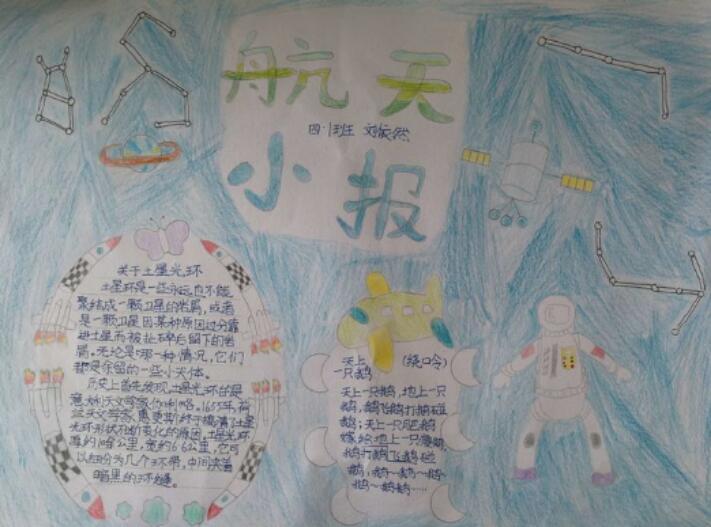 航天
四·1班 刘依然
小报
关于土星光环
土星环是一些永远也不能
聚结成一颗卫星的岩屑,或者
是一颗卫星因某种原因过分靠
进土星而被扯碎后留下的岩
屑。无论是哪一种情况,它们
都是余留的一些小天体。
历史上首先发现土星光环的是
意大利天文学家伽利略。1655年,荷
兰天文学家惠更斯终于搞清了土星
光环形状不断变化的原因。土星光环
厚约10公里,宽约6.6公里,它可
以细分为几个环带,中间夹着
暗黑的环缝。
天上 (绕口令)
一只鹅
天上一只鹅,地上一只
鹅,鹅飞鹅打鹅碰
鹅;天上一只肥鹅
嫁给地上一只瘦鹅,
鹅打鹅飞鹅碰
鹅,鹅~鹅~鹅
鹅~鹅鹅……